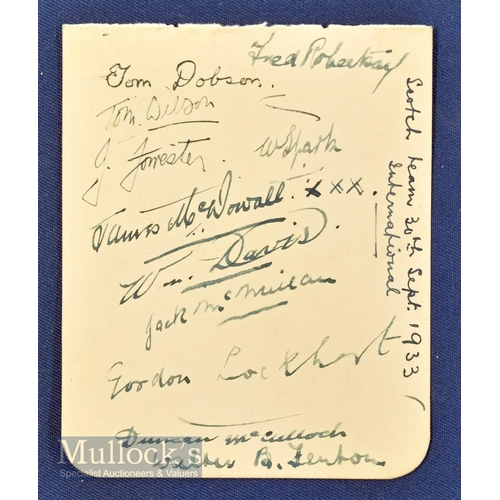 Fred Robertson
Tom Dobson.
Tom Wilson
J. Forrester.
W Spark
James McDowall. xxx.
Wm. Davis.
Jack McMillan
Gordon Lockhart
Duncan McCulloch
B. Fenton
Scotch team 20th Sept. 1933
International
Mullock's
Specialist Auctioneers & Valuers